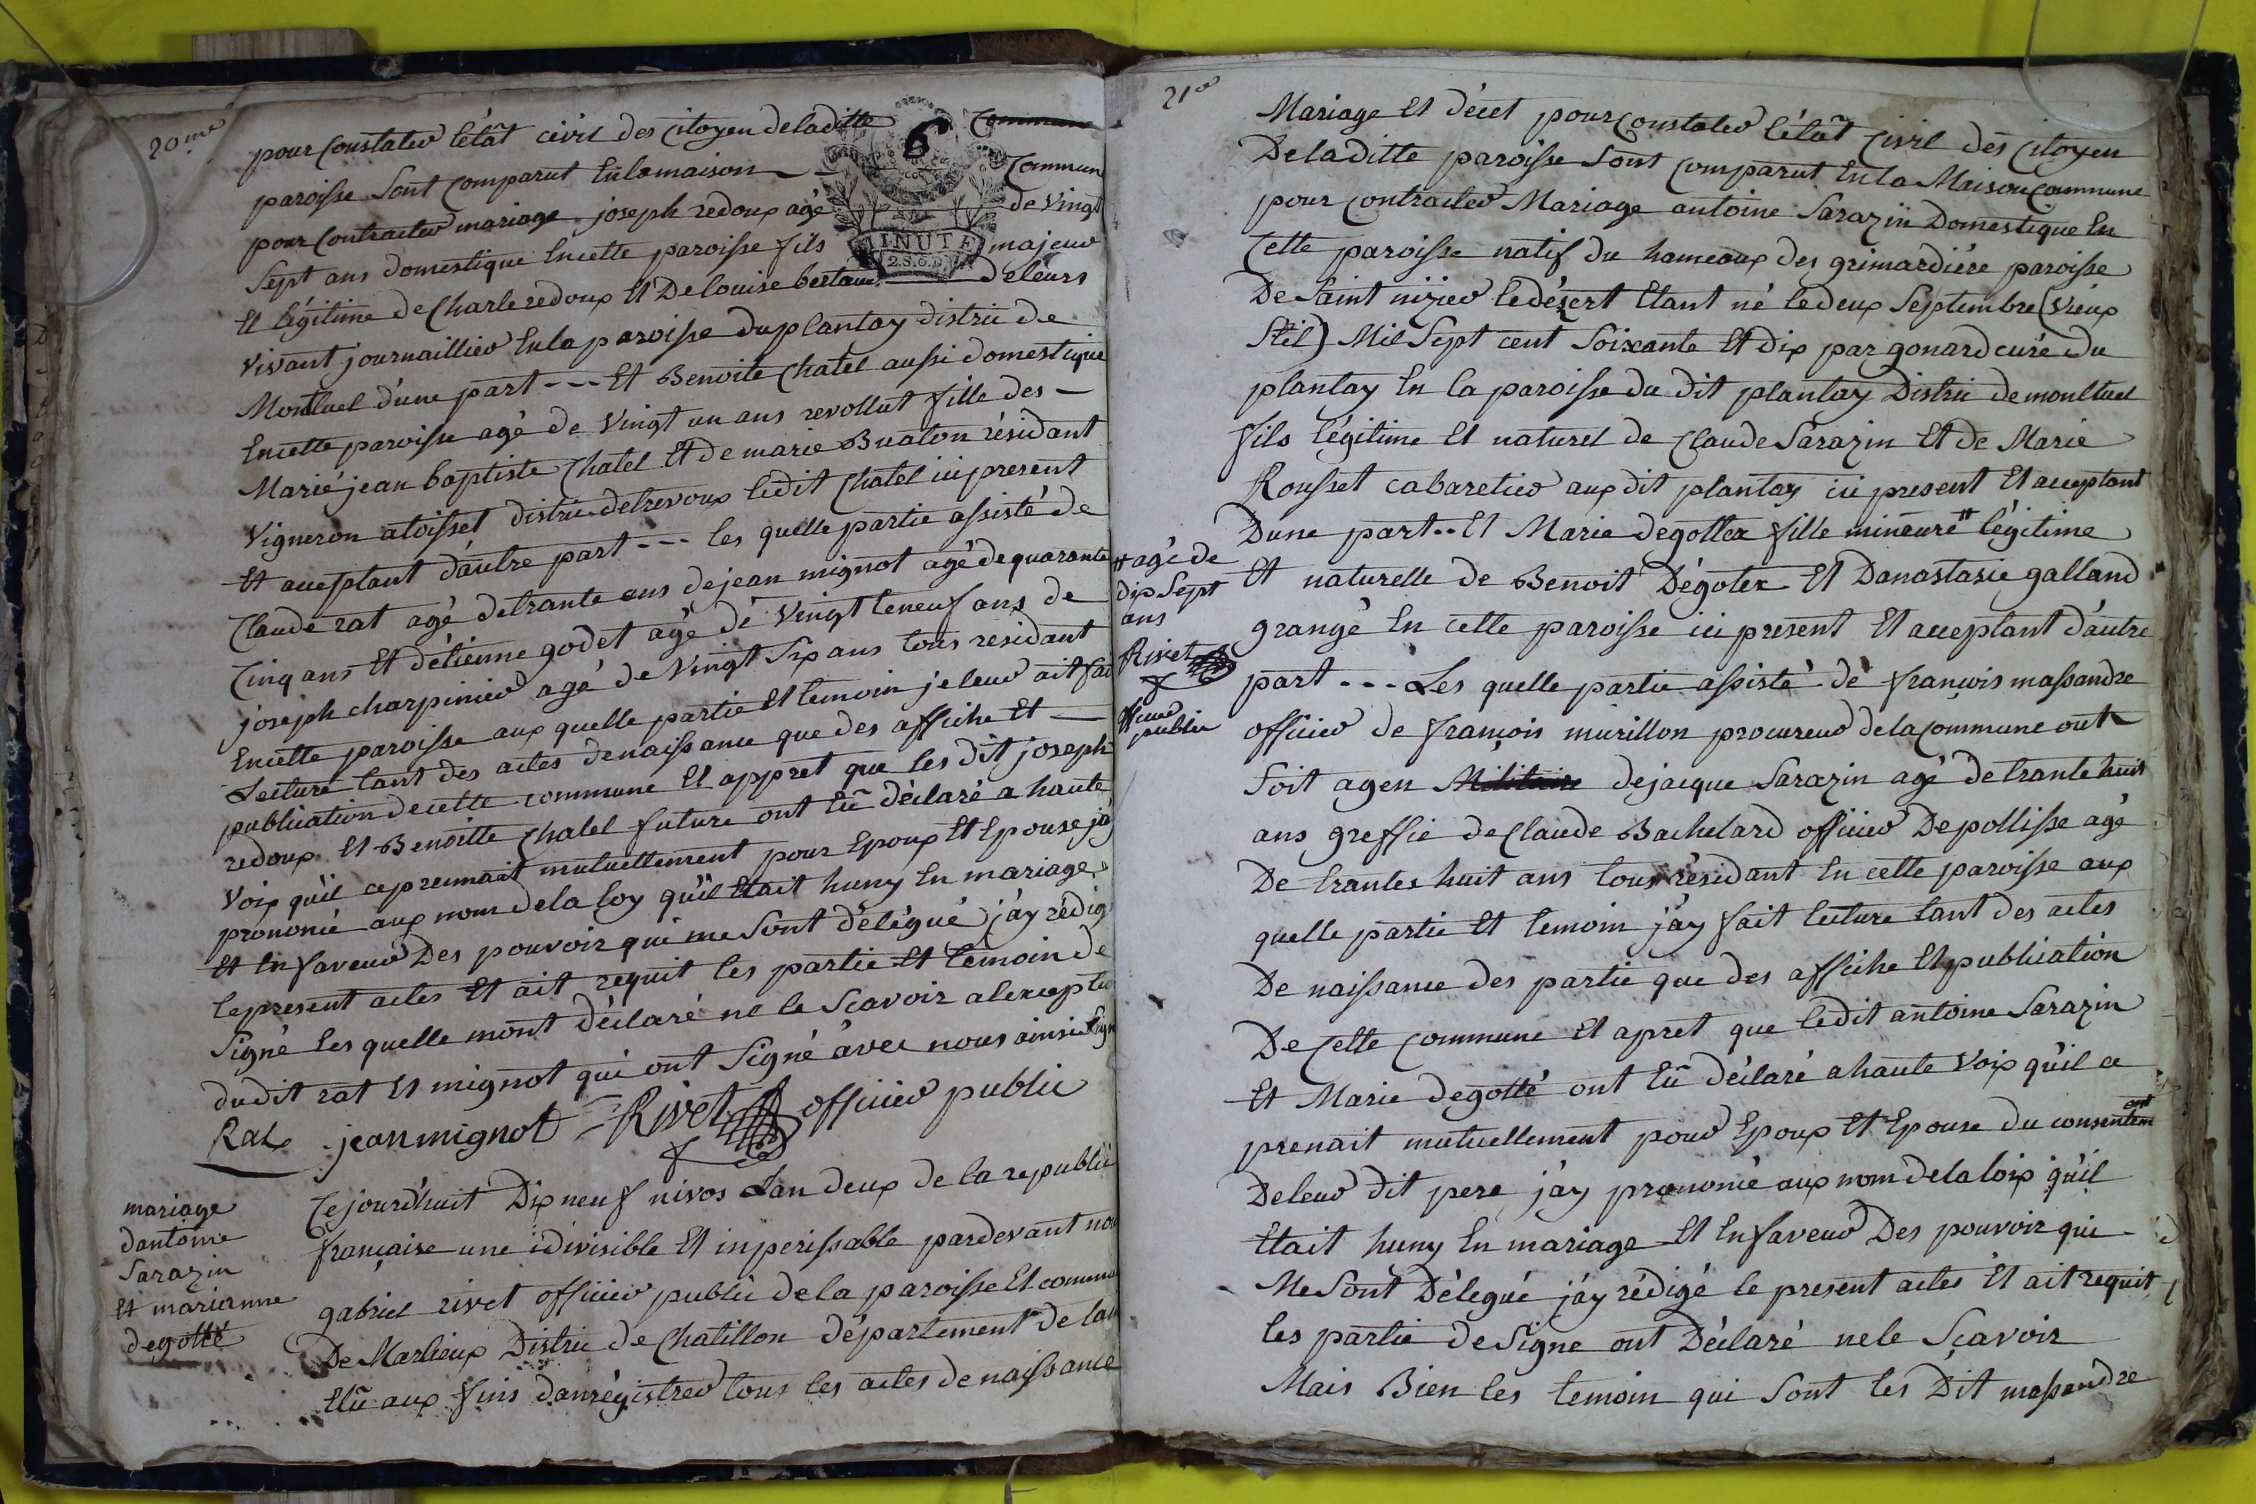 20me
pour Constater l'état civil des Citoyen de laditte
6
Commune
paroisse Sont Comparut En la maison
Commun
pour Contracter mariage joseph redoux agé
de Vingt
Sept ans domestique En cette paroisse fils
majeur
MINUTE
2.S.6.D
Et légitime de Charle redoux Et De louise
deleurs
vivant journaillier En la paroisse du plantay distric de
Montluel d'une part --- Et Benoite Chatel aussi domestique
En cette paroisse agé de Vingt un ans revollut fille des
Marié jean baptiste Chatel Et de marie Buaton résidant
Vigneron atoisset distric detrevoux ledit Chatel ici present
Et acceptant d'autre part --- les quelle partie assisté de
Claude rat agé de trante ans de jean mignot agé de quarante
Cinq ans Et d'étienne godet agé de Vingt teneuf ans de
joseph charpinier agé de Vingt Six ans tous residant
En cette paroisse aux quelle partie Et temoin je leur ait fait
Lecture tant des actes de naissance que des affiche Et
publication de cette commune Et appret que les dit joseph
redoux Et Benoitte Chatel future ont Eû déclaré a haute
Voix qu'il ce prennait mutuellement pour Epoux Et Epouse j'ay
prononcé aux nom de la loy qu'il Etait huny En mariage
Et En faveur Des pouvoir qui me Sont délégué j'ay rédigé
le present actes Et ait requit les partie Et temoin de
Signé les quelle mont déclaré ne le Scavoir a lexception
dudit rat Et mignot qui ont Signé avec nous ainsi Signé
Rat jean mignot Rivet officier public
mariage
dantoine
Sarazin
Et marianne
degotté
Cejourd'huit Dix neuf nivos Lan deux de la republic
française une idivisible Et inperissable pardevant nou
gabriel rivet officier public de la paroisse Et commun
De Marlieux Distric de Chatillon département de lain
Elû aux fins danrégistrer tous les actes de naissance
21e
Mariage Et décet pour Constater l'état Civil des Citoyen
De laditte paroisse Sont Comparut En la Maison Commune
pour Contracter Mariage antoine Sarazin Domestique En
Cette paroisse natif du hameaux des grimardiére paroisse
De Saint nizier le désert Etant né le deux Septembre (Vieux
Stil) Mil Sept cent Soixante Et dix par gonard curé du
plantay En la paroisse du dit plantay Distric de montluel
fils légitime Et naturel de Claude Sarazin Et de Marie
Rousset cabaretier aux dit plantay ici present Et acceptant
Dune part -- Et Marie degottex fille mineure # légitime
# agé de
dix Sept
ans
Rivet
officier
public
Et naturelle de Benoit Dégotex Et Danastasie galland
grangé En cette paroisse ici present Et acceptant d'autre
part --- Les quelle partie assisté de françois massandre
officier de françois murillon procureur de la Commune out
Soit agen Militaire de jacque Sarazin agé de trante huit
ans greffié de Claude Bachelard officier De pollisse agé
De trantes huit ans tous résidant En cette paroisse aux
quelle partie Et temoin j'ay fait lecture tant des actes
De naissance des partie que des affiche Et publication
De Cette Commune Et apret que ledit antoine Sarazin
Et Marie degotté ont Eû déclaré a haute Voix qu'il ce
prenait mutuellement pour Epoux Et Epouse du consentement
De leur dit pere j'ay prononcé aux nom de la loix qu'il
Etait huny En mariage Et En faveur Des pouvoir qui
Me Sont Délegué j'ay rédigé le present actes Et ait requit
les partie de Signe ont Déclaré ne le Scavoir
Mais Bien les temoin qui Sont les Dit massandre